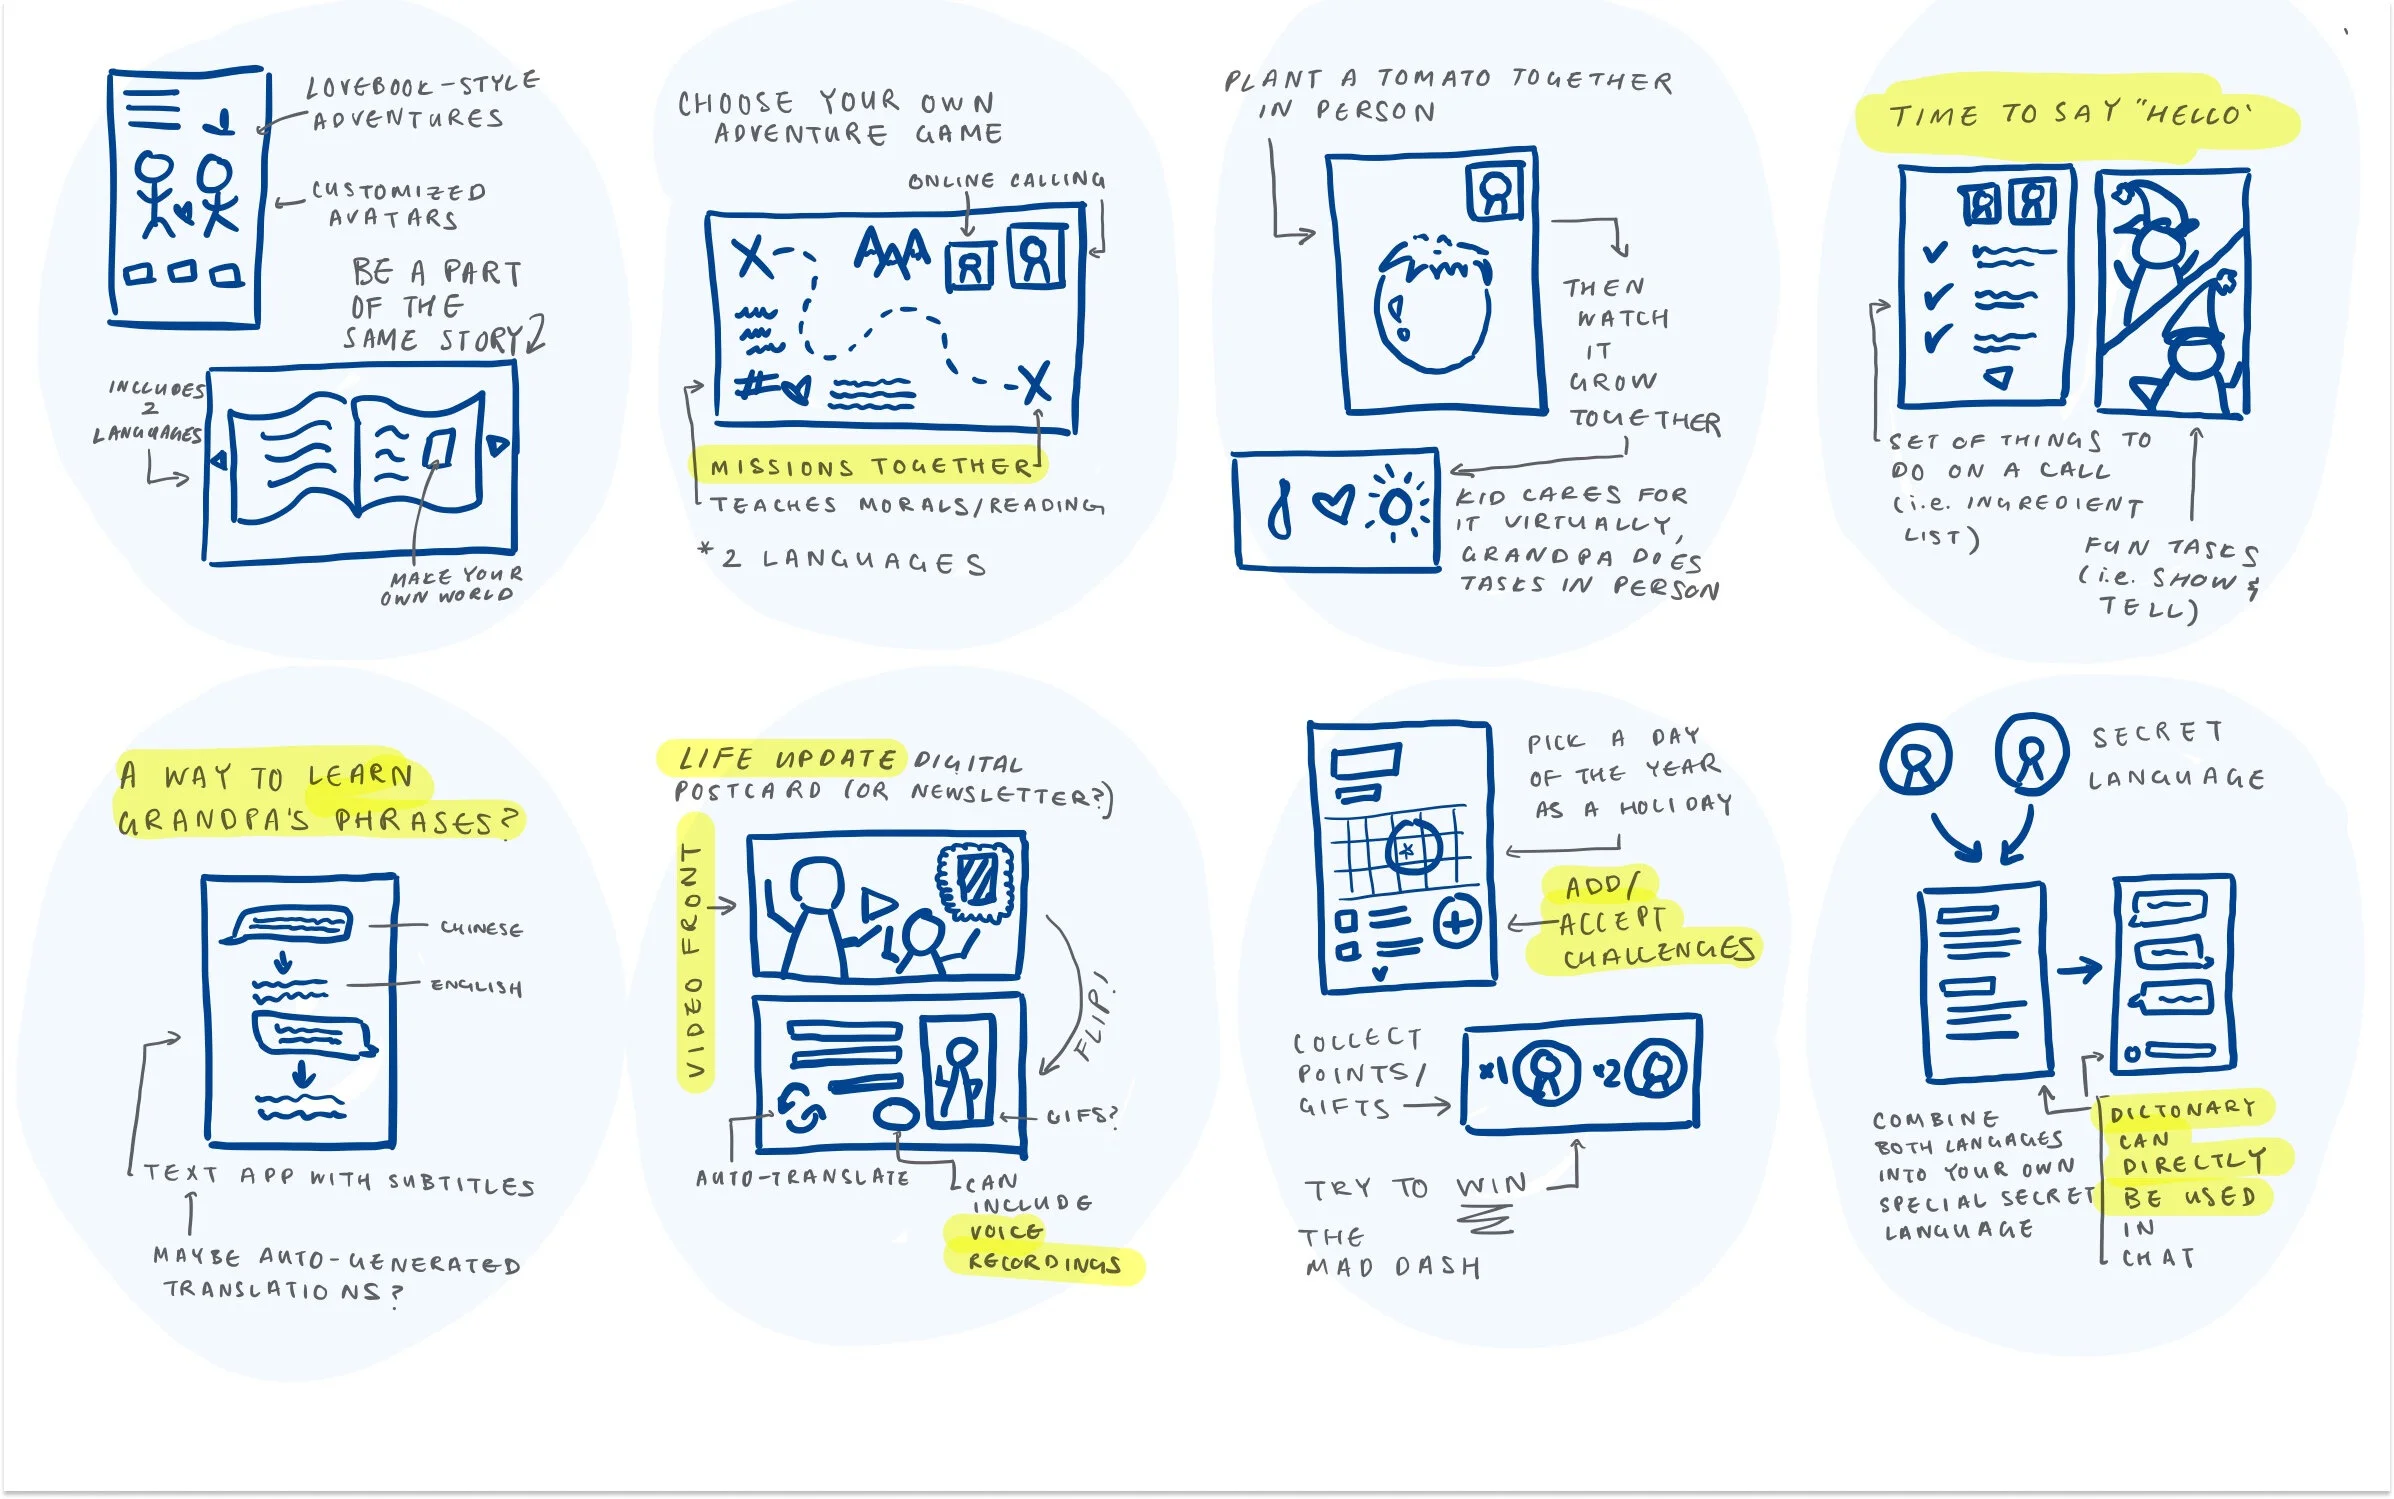 LOVEBOOK-STYLE
ADVENTURES
CUSTOMIZED
AVATARS
BE A PART
OF THE
SAME STORY
INCLUDES
2
LANGUAGES
MAKE YOUR
OWN WORLD
CHOOSE YOUR OWN
ADVENTURE GAME
ONLINE CALLING
MISSIONS TOGETHER
TEACHES MORALS/READING
* 2 LANGUAGES
PLANT A TOMATO TOGETHER
IN PERSON
THEN
WATCH
IT
GROW
TOGETHER
KID CARES FOR
IT VIRTUALLY,
GRANDPA DOES
TASKS IN PERSON
TIME TO SAY "HELLO'
SET OF THINGS TO
DO ON A CALL
(i.e. INGREDIENT
LIST)
FUN TASKS
(i.e. SHOW &
TELL)
A WAY TO LEARN
GRANDPA'S PHRASES?
CHINESE
ENGLISH
TEXT APP WITH SUBTITLES
MAYBE AUTO-GENERATED
TRANSLATIONS?
LIFE UPDATE DIGITAL
POSTCARD (OR NEWSLETTER?)
VIDEO FRONT
FLIP!
GIFS?
AUTO-TRANSLATE
CAN
INCLUDE
VOICE
RECORDINGS
PICK A DAY
OF THE YEAR
AS A HOLIDAY
ADD/
ACCEPT
CHALLENGES
COLLECT
POINTS/
GIFTS
×1 ×2
TRY TO WIN
THE
MAD DASH
SECRET
LANGUAGE
COMBINE
BOTH LANGAGES
INTO YOUR OWN
SPECIAL SECRET
LANGUAGE
DICTONARY
CAN
DIRECTLY
BE USED
IN
CHAT